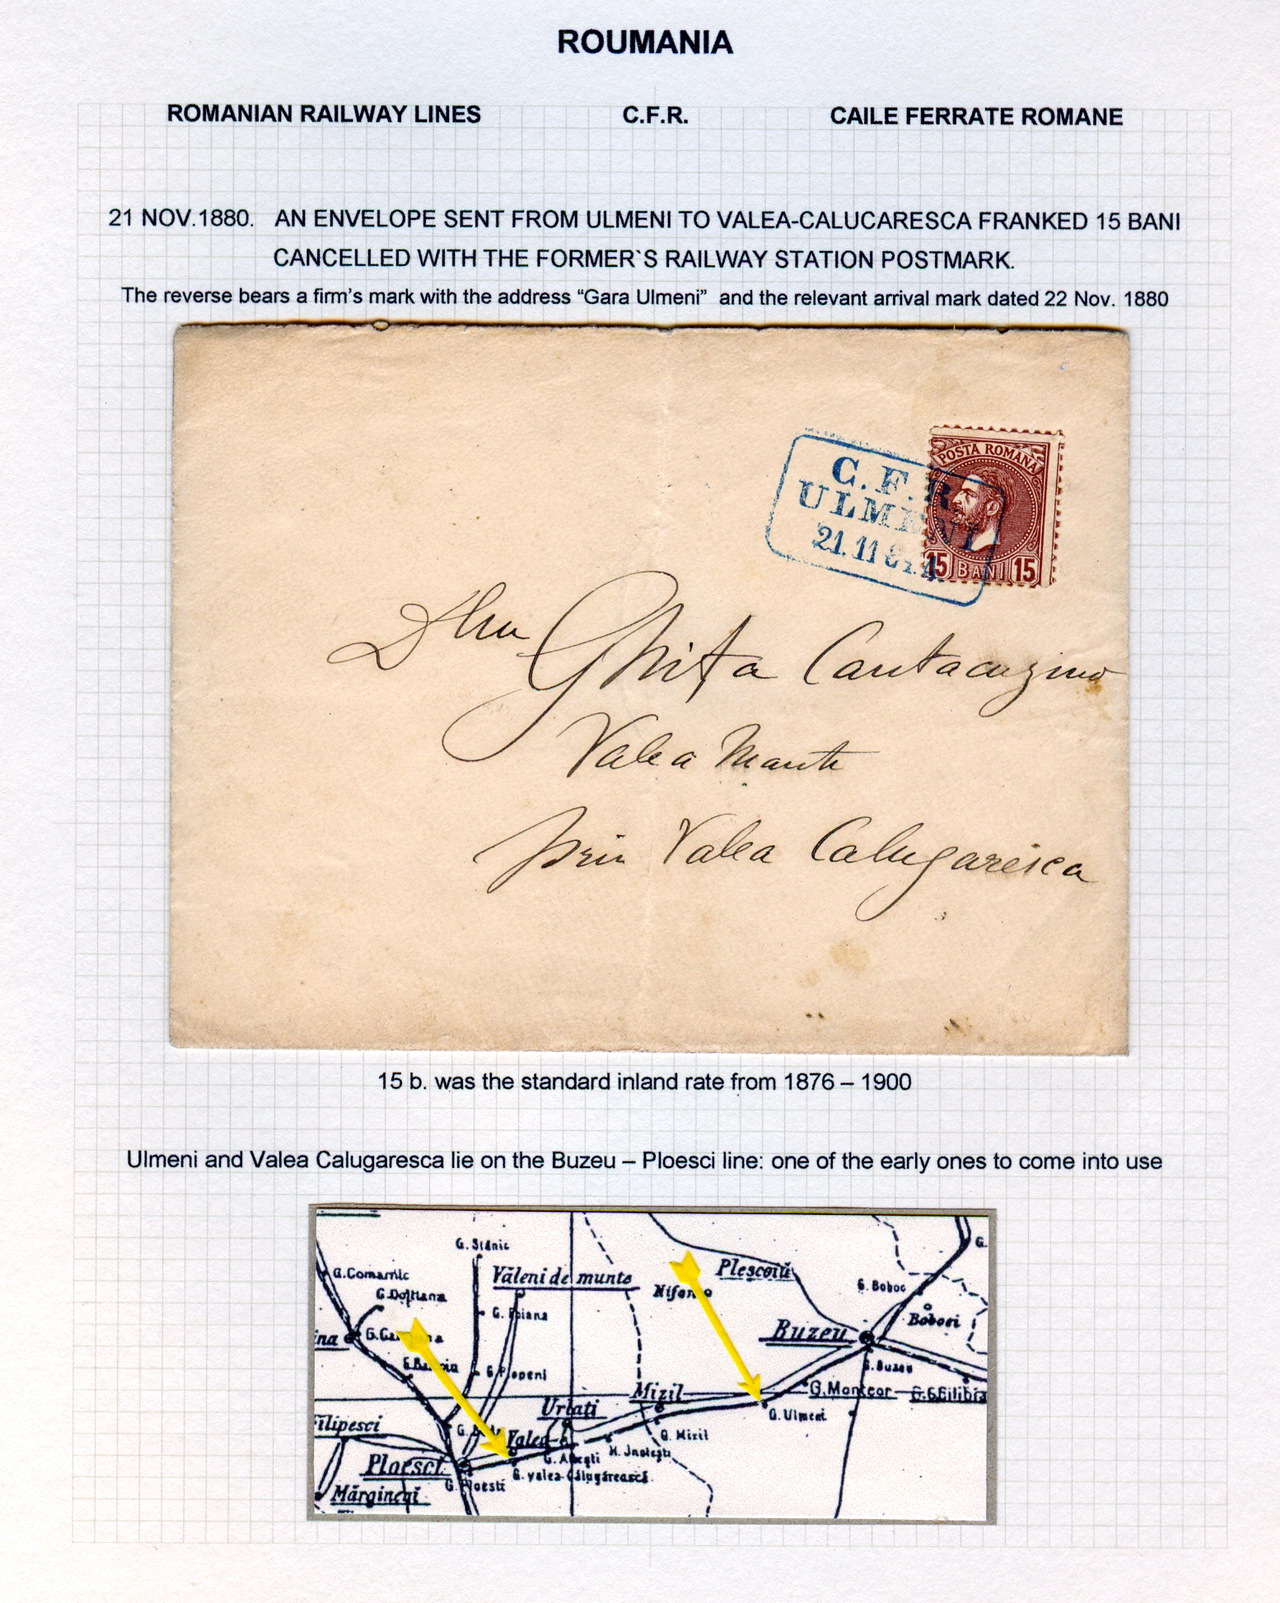 ROUMANIA
ROMANIAN RAILWAY LINES C.F.R. CAILE FERRATE ROMANE
21 NOV.1880. AN ENVELOPE SENT FROM ULMENI TO VALEA-CALUCARESCA FRANKED 15 BANI
CANCELLED WITH THE FORMER`S RAILWAY STATION POSTMARK.
The reverse bears a firm's mark with the address “Gara Ulmeni” and the relevant arrival mark dated 22 Nov. 1880
POSTA ROMANA
15 BANI 15
C. F. R.
ULMENI
21.11
Ghita Cantacuzino
Valea
prin Valea Calugaresca
15 b. was the standard inland rate from 1876 – 1900
Ulmeni and Valea Calugaresca lie on the Buzeu – Ploesci line: one of the early ones to come into use
G. Slănic
G. Comarnic
Văleni de munte
Plescoiŭ
G.
G. Doftana
G. Boboc
G. Poiana
Boboci
ina
Buzeu
G. Buzeu
G. Plopeni
Mizil
G. Monteor
Urlați
G. Ulmeni
Filipesci
G. Mizil
Valea-
Ploesci
G. Ploesti
G. Valea-Călugărească
Mărgineni